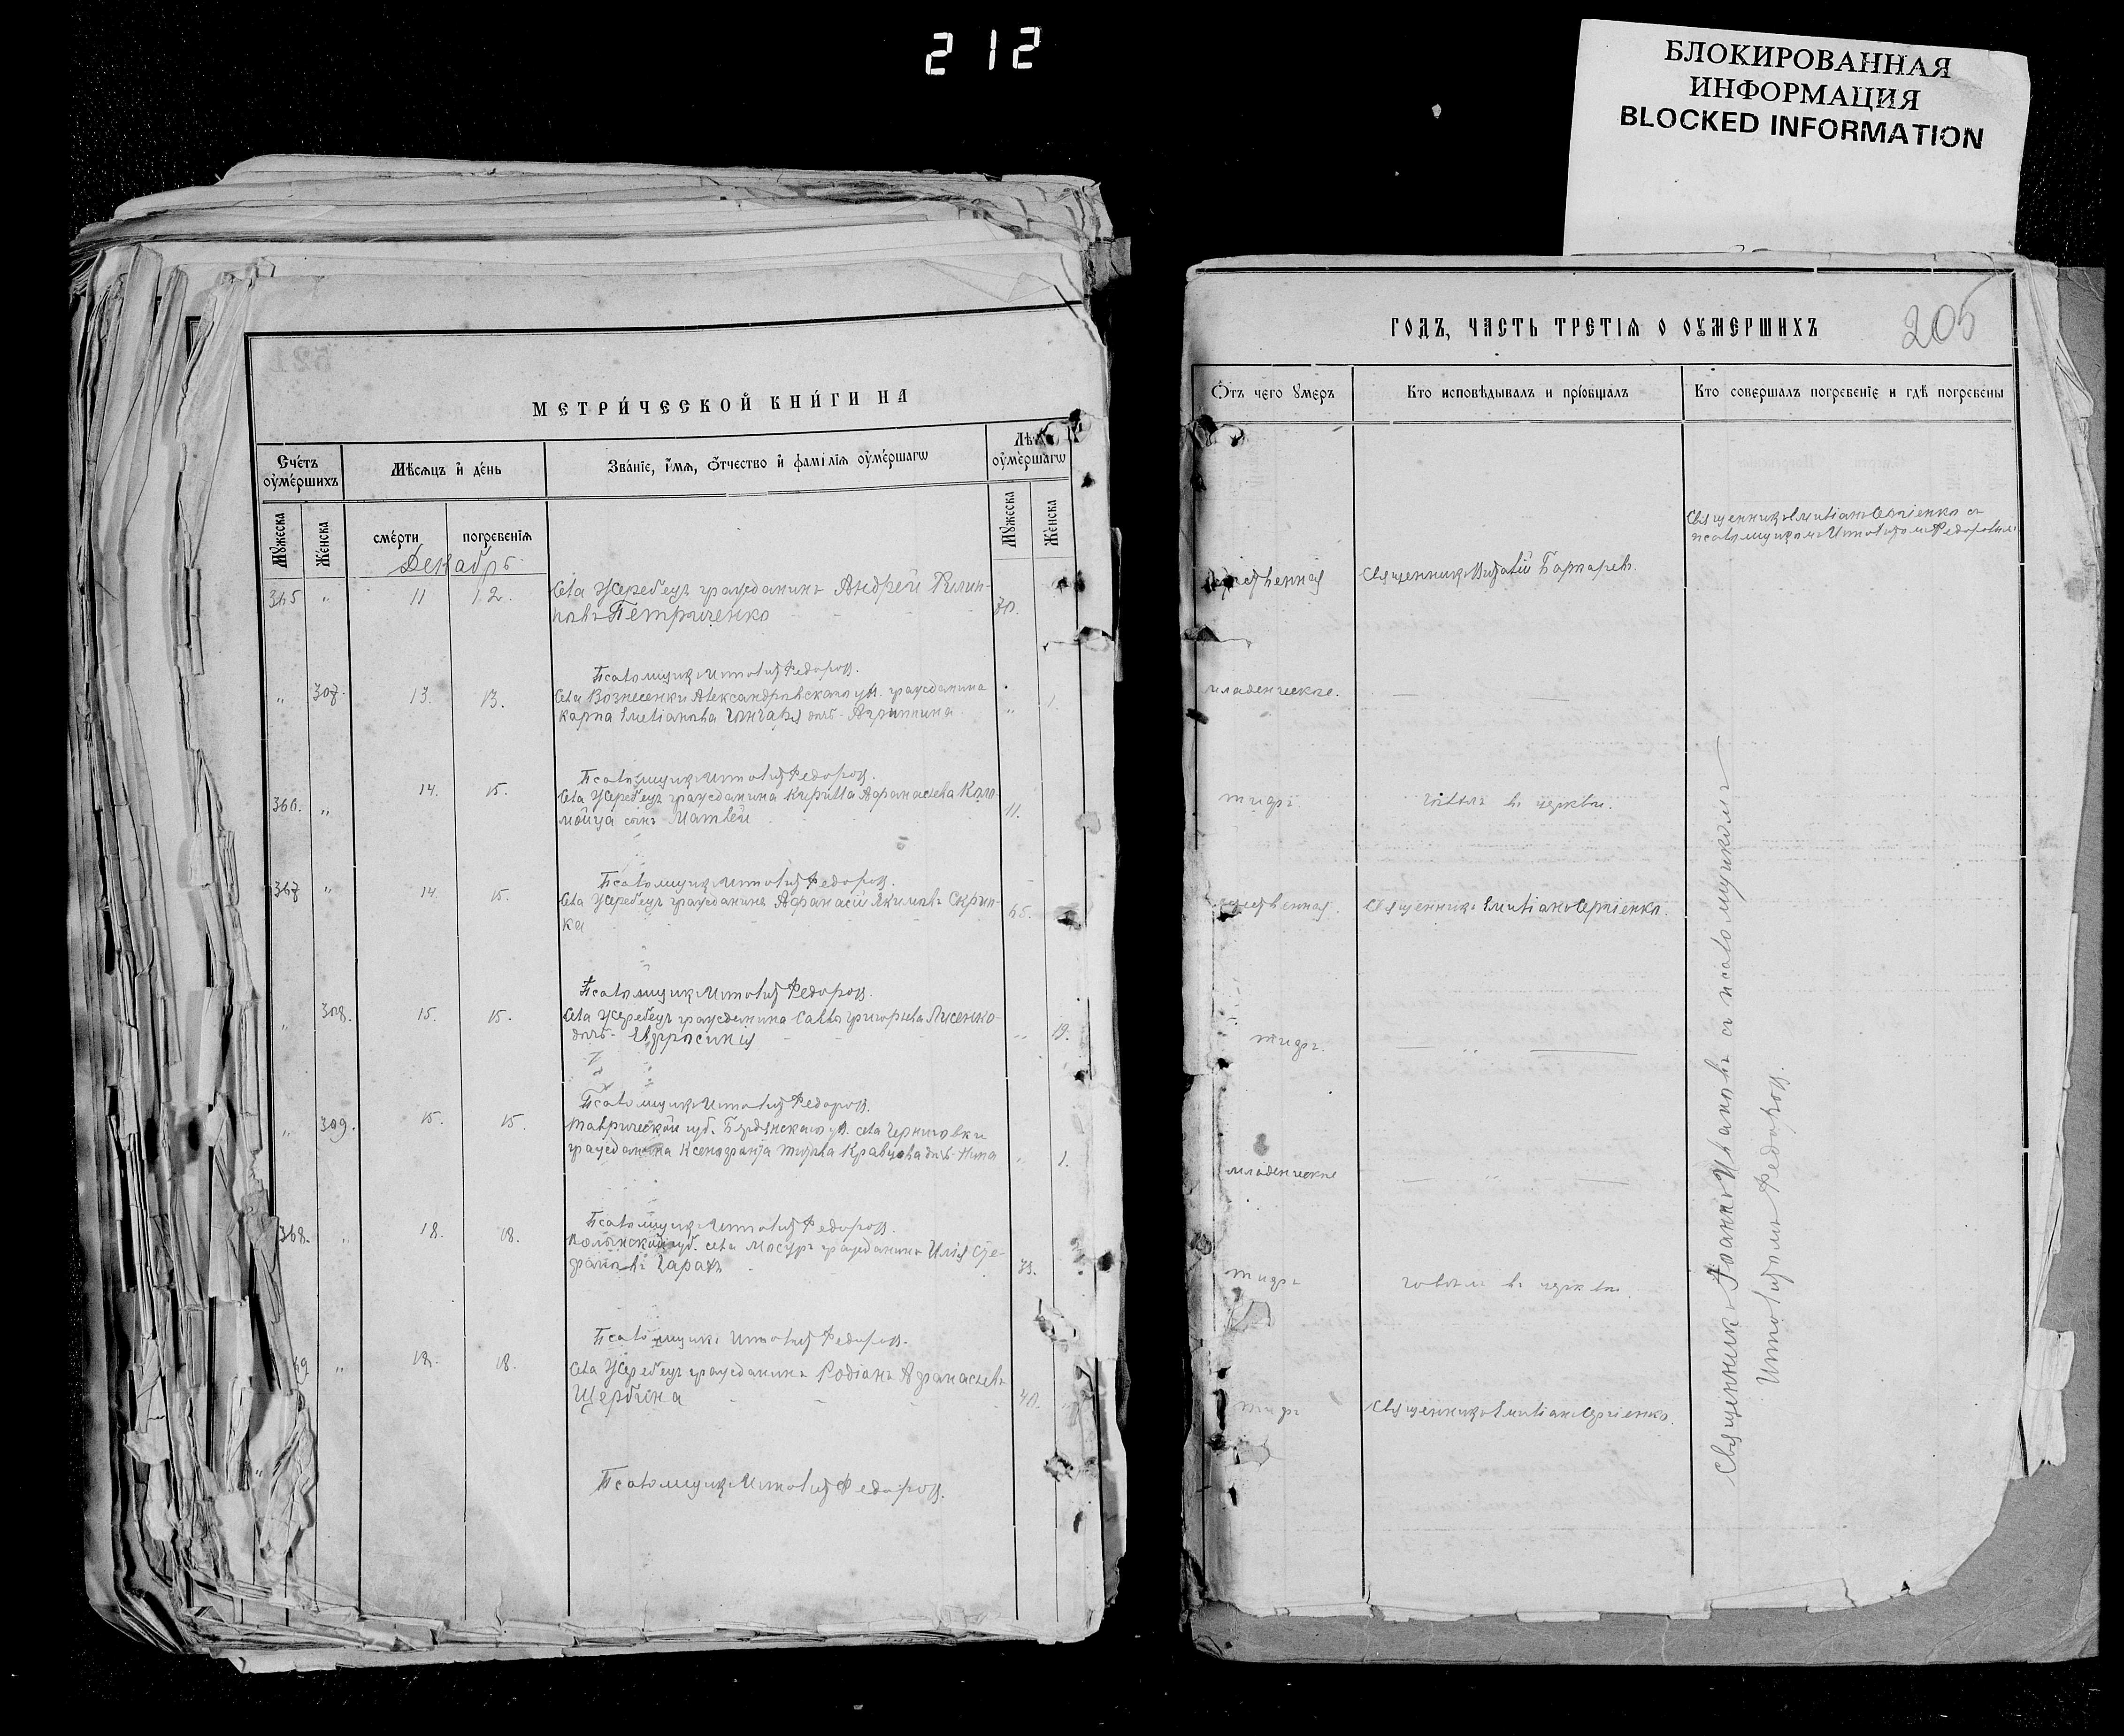 212
БЛОКИРОВАННАЯ
ИНФОРМАЦИЯ
BLOCKED INFORMATION
МЕТРИ́ЧЕСКОЙ КНИ́ГИ НА
Сче́тъ оумéршихъ
Мѣсяцъ и́ де́нь
Зва́нiе, и́мя, ѻ҆́тчество и҆ фамíлiя оумéршагѡ
Лѣта оумéршагѡ
Мꙋжеска
Женска
сме́рти
погребенiя
Мꙋжеска
Женска
Декабрь
365 " 11 12. Села Жеребецъ гражданинъ Андрей Филип-
повъ Петриченко 70.
Псаломщикъ Ипполитъ Федоровъ.
" 307. 13. 13. Села Вознесенки Александровскаго уѣ. гражданина
Карпа Емелiанова дочь Агрипина " 1.
Псаломщикъ Ипполитъ Федоровъ.
366. " 14. 15. Села Жеребецъ гражданина Кирилла Афанасьева Коло-
мойца сынъ Матвѣй 11.
Псаломщикъ Ипполитъ Федоровъ.
367 " 14. 15. Села Жеребецъ гражданинъ Афанасiй Якимовъ Скрип-
ка 65.
Псаломщикъ Ипполитъ Федоровъ.
" 308. 15. 15. Села Жеребецъ гражданина Саввы Григорьева Лисенко
дочь Евфросинiя " 19.
Псаломщикъ Ипполитъ Федоровъ.
" 309. 15. 15. Таврической губ. Бердянскаго уѣ. села Черниговки
гражданина Ксенофонта Кравцова дочь Нина " 1.
Псаломщикъ Ипполитъ Федоровъ.
368. " 18. 18. Волынской губ. села гражданинъ Илiя Сте-
фановъ 73.
Псаломщикъ Ипполитъ Федоровъ.
69 " 18. 18. Села Жеребецъ гражданинъ Родiонъ Афанасьевъ
Щербина 40.
Псаломщикъ Ипполитъ Федоровъ.
ГОДЪ, ЧАСТЬ ТРЕТIЯ О ОУМЕРШИХЪ
205
Ѿтъ чегѡ ᲂумеръ
Кто исповѣдывалъ и прiобщалъ
Кто совершалъ погребенiе и гдѣ погребены
Священникъ Емилiанъ Сергiенко съ
псаломщикомъ Ипполитомъ Федоровымъ
Священникъ Бартаревъ.
младенческое.
тифъ. говѣлъ въ церкви.
Священникъ Емилiанъ Сергiенко.
тифъ. "
младенческое "
тифъ говѣлъ въ церкви.
тифъ Священникъ Емилiанъ Сергiенко.
Священникъ Iоаннъ Ивановъ съ псаломщикомъ
Ипполитомъ Федоров.